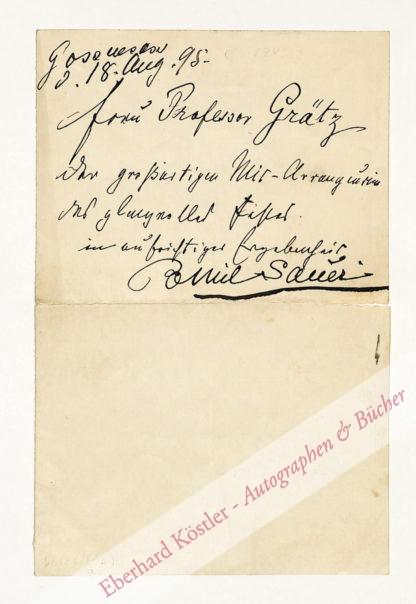 d. 18. Aug. 95.
Frau Professor Grätz
der großartigen Mit-Arrangeurin
des glanzvollen Festes.
in aufrichtiger Ergebenheit
Emil Sauer
Eberhard Köstler - Autographen & Bücher